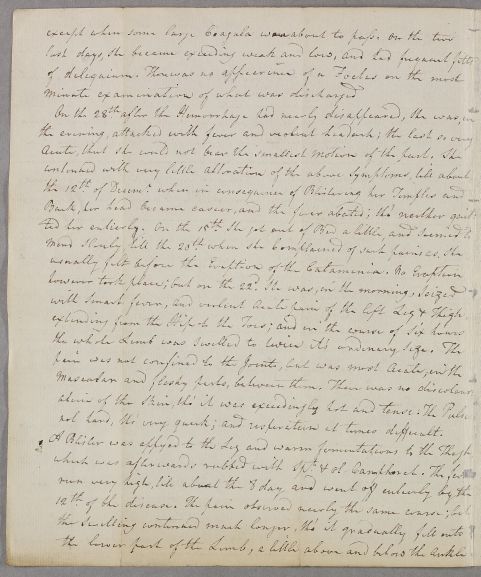 except when some large Coagula was about to pass. On the two
last days, she became exceeding weak and low, and had frequent fitts
of deliquium. There was no appearance of a Foetus on the most
minute examination of what was discharged
On the 28th after the Hemorrhage had nearly disappeared, she was, in
the evening, attacked with fever and violent headach; the last so very
acute, that she could not bear the smallest motion of the part. She
continued with very little alteration of the above symptoms, till about
the 12th of Decemr. when in consequence of Blistering her Temples and
Back, her head became easier, and the fever abated; tho' neither quit-
ted her entirely. On the 15th she got out of Bed a little and seemed to
mend slowly, till the 20th when she complained of such pains as, she
usually felt before the Eruption of the Catamenia. No Eruption
however took place; but on the 22d. she was, in the morning, seized
with smart fever, and violent acute pain of the left Leg & Thigh
extending from the Hip to the Toes; and in the course of six hours
the whole Limb was swelled to twice it's ordinary size. The
pain was not confined to the Joints, but was most acute, in the
Muscular and fleshy parts, between them. There was no discolour-
ation of the skin, tho' it was exceedingly hot and tense. The Pulse
not hard, tho' very quick; and respiration at times difficult.
A Blister was applyed to the Leg and warm fomentations to the Thigh
which was afterwards rubbed with Spt. & ol. Camphorat. The fever
run very high, till about the 8 day, and went off entirely by the
12th of the disease. The pain observed nearly the same course; but
the swelling continued much longer, tho' it gradually fell into
the lower part of the Limb, a little above and below the Ankle